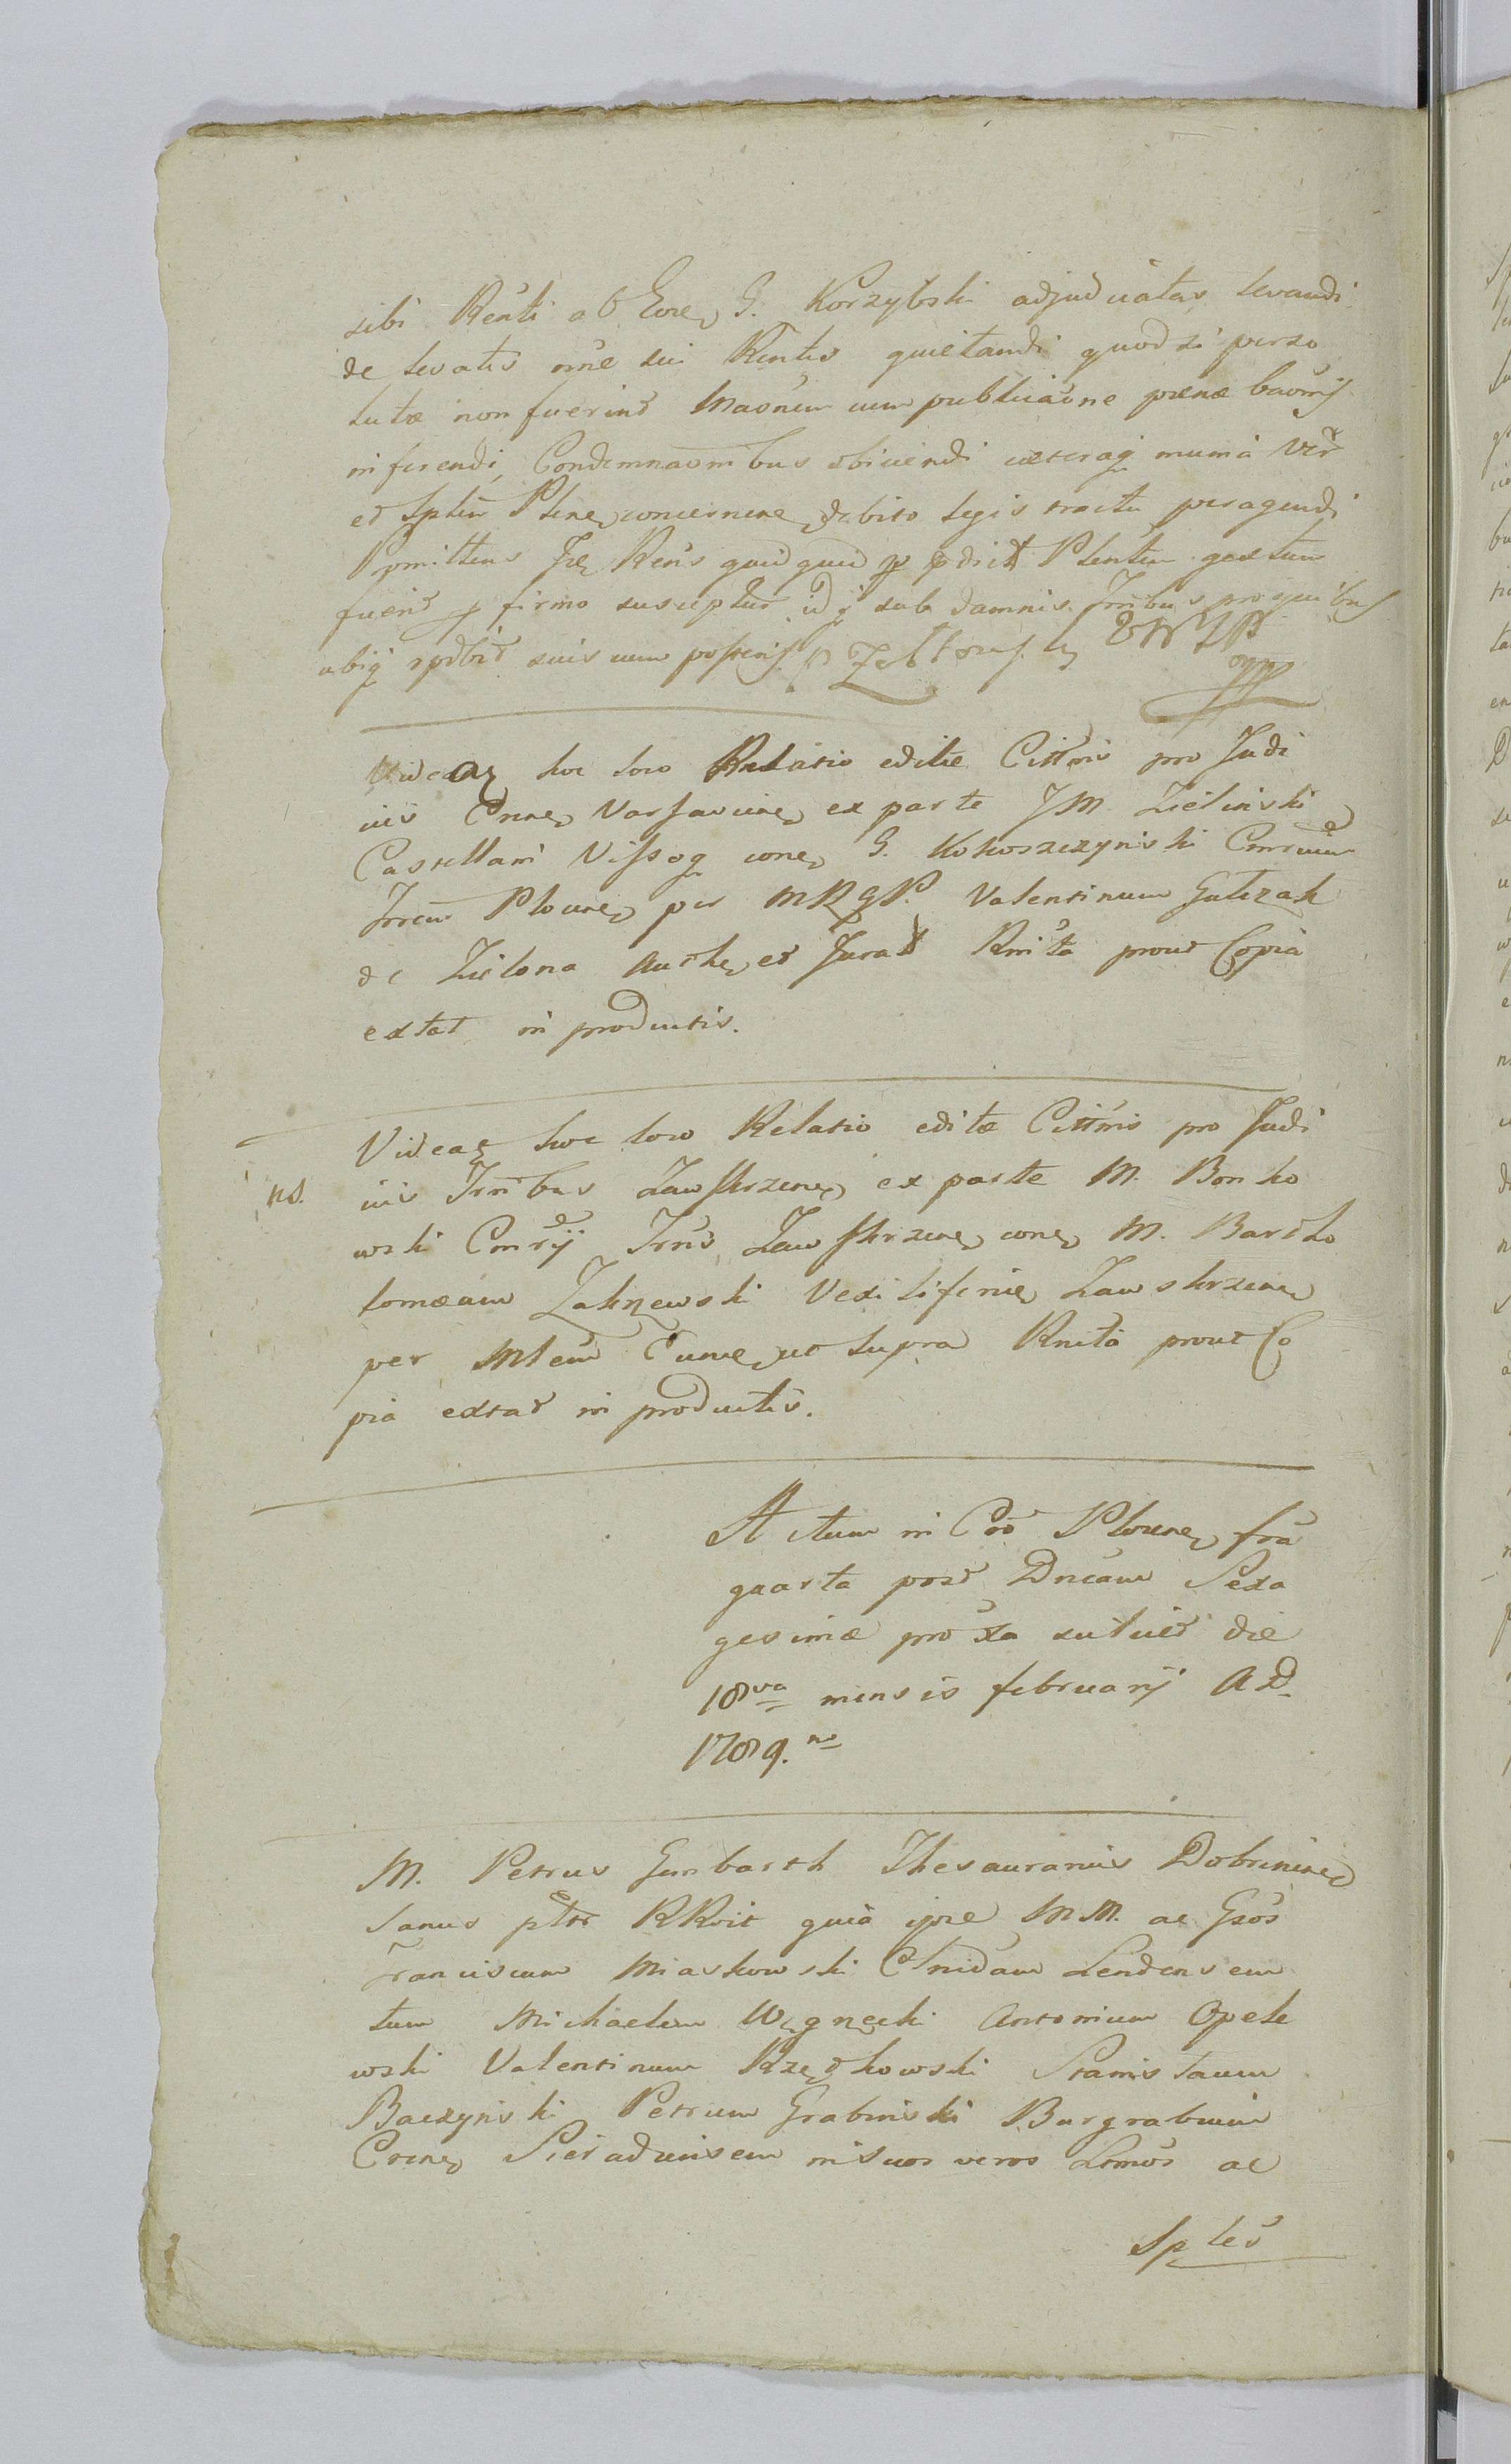 sibi Renti ab Eore G. Korzybski adjudicatas levandi
de levatis nne sui Rentis quietandi quod si perso
lutæ non fuerint Maonem cum publicaone pænæ baonis
inferendi, Condemnaonibus obiiciendi cæteraq munia Vir
et Splem Plene concernene debito legis tractu peragendi
Promittens Ise Rens quidquid p pdict Plentem gestum
fuerit p firmo susciptur idq sub damnis Trribus pro quibus
ubiq spdbit suis cum posteris
Videatz hoc loco Relatio editæ Cittnis pro Judi
ciis Crnes Varsavienes ex parte JM. Zielinski
Castellani Vissog cone G. Kokoszczynski Cmrcium
Trreum Plocene per MRGP. Valentinum Gutczak
de Zielona Auth et Jurat Rnita prout Copia
extat in productis.
Videatz hoc loco Relatio editæ Cittnis pro Judi
ns. ciis Trribus Zawskrzenes ex parte M. Bonko
wski Cmrij Trris Zawskrzene cone M. Bartho
lomæum Zakrzewski Vexiliferum Zawskrzene
per Mlem Eume ut supra Rnita prout Co
pia extat in productis.
Actum in Coo Plocene fria
quarta post Dncam Sexa
gesimæ proxa scilicet die
18va mensis februarij AD.
1789.no
M. Petrus Gumbarth Thesaurarius Dobrinene
Sanus pltr RRvit quia ipse MM. ac Gsos
Franciscum Miaskowski Cnidam Lendensem
tum Michaelem Węgrzecki Antonium Opele
wski Valentinum Rzętkowski Stanislaum
Baczynski Petrum Grabinski Burgrabium
Crene Sieradiensem in suos veros Lrmos ac
Sples